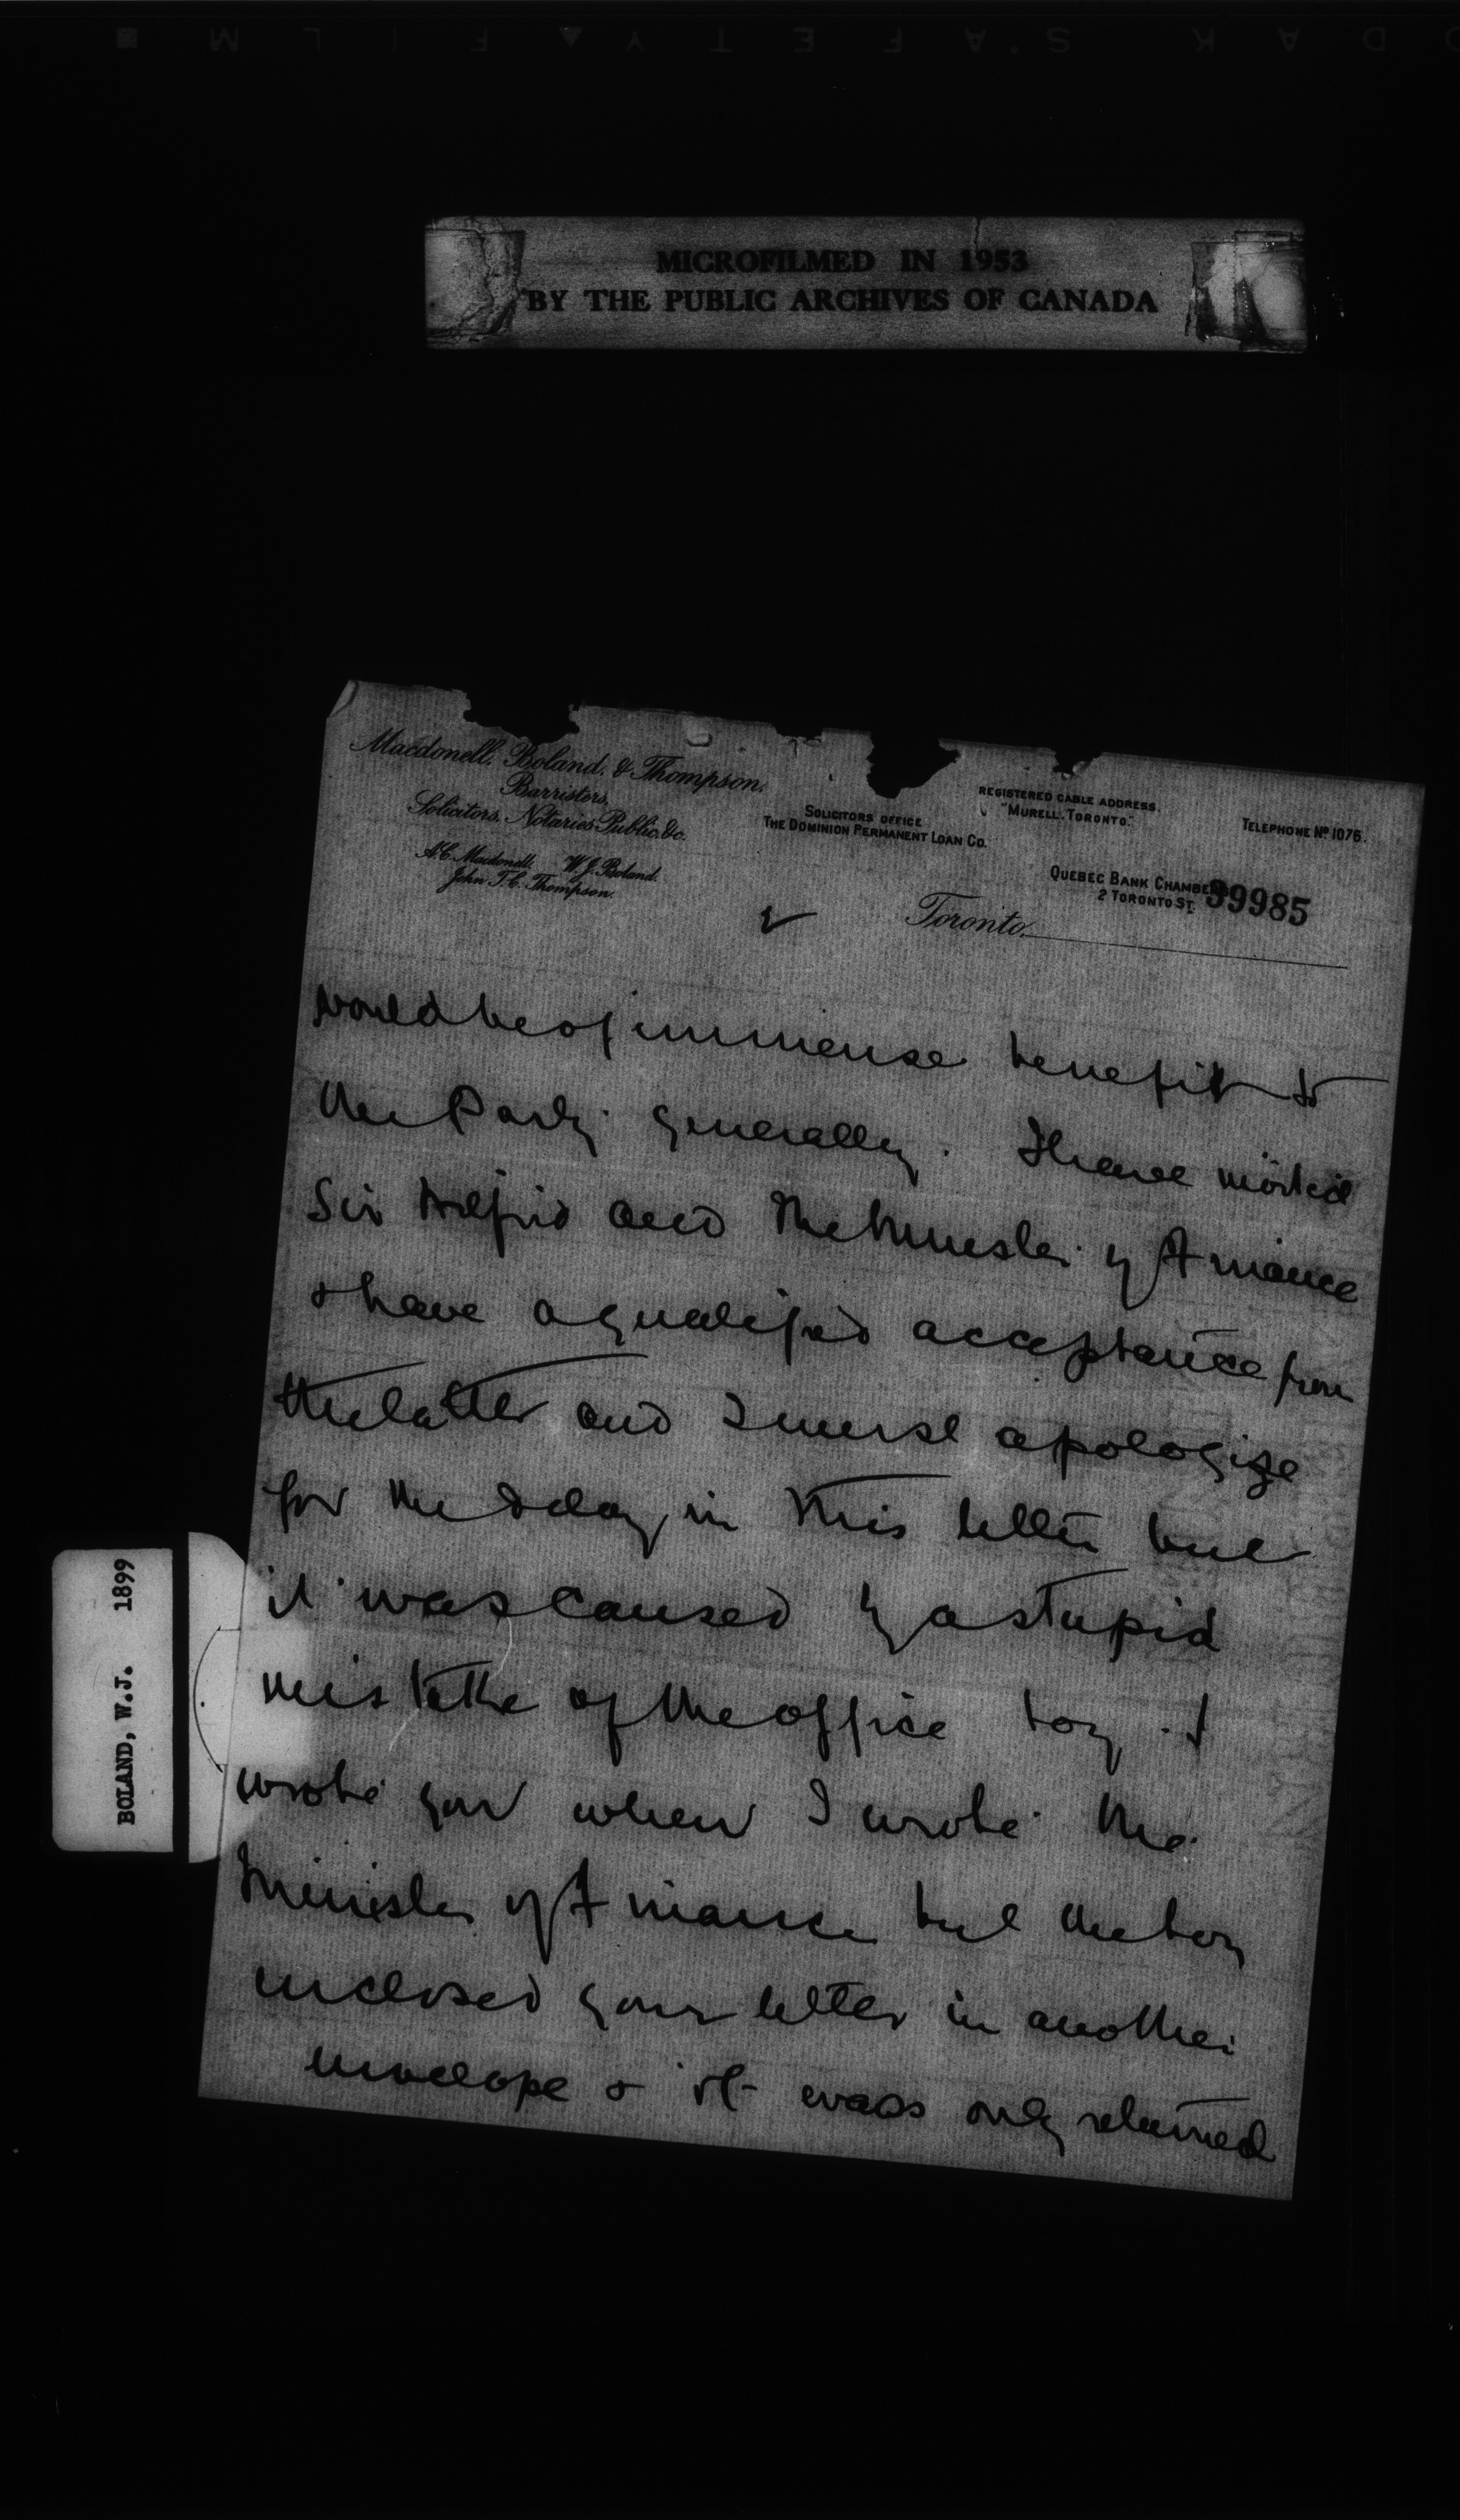 KODAK SAFETY FILM
MICROFILMED IN 1953
BY THE PUBLIC ARCHIVES OF CANADA
Macdonell, Boland, & Thompson,
Barristers,
Solicitors, Notaries Public, &c.
A.C. Macdonell. W.J. Boland.
John T.C. Thompson.
SOLICITORS OFFICE
THE DOMINION PERMANENT LOAN CO.
REGISTERED CABLE ADDRESS,
"MURELL, TORONTO."
TELEPHONE No 1076.
QUEBEC BANK CHAMBERS
2 TORONTO ST.
39985
Toronto,
would be of immense benefit to
the Party generally. I have
Sir Wilfrid and the Minister of Finance
& have a qualified acceptance from
the latter and I must apologize
for the delay in this letter but
it was caused by a stupid
mistake of the office boy. I
wrote you when I wrote the
Minister of Finance but the boy
enclosed your letter in another
envelope & it was only returned
BOLAND, W.J. 1899